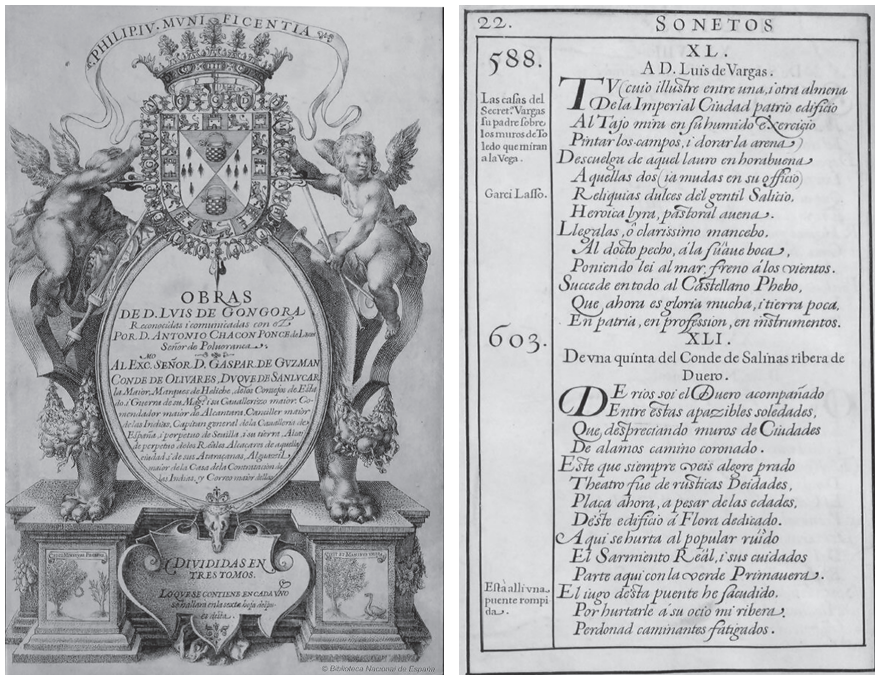 PHILIP. IV. MVNIFICENTIA
OBRAS
DE D. LVIS DE GONGORA
Reconocidas i comunicadas con el
POR D. ANTONIO CHACON PONCE de Leon
Señor de Poluoranca.
AL EXC.MO SEÑOR D. GASPAR DE GVZMAN
CONDE DE OLIVARES, DVQVE DE SANLVCAR
la Maior, Marques de Heliche, de los Consejos de Esta
do i Guerra de su Magd. i su Cauallerizo maior, Co-
mendador maior de Alcantara, Canciller maior
de las Indias, Capitan general de la Caualleria de
España, i perpetuo de Seuilla, i su tierra, Alcai
de perpetuo de los Reales Alcaçares de aquella
ciudad i de sus Ataraçanas, Alguazil
maior de la Casa de la Contratacion de
las Indias, y Correo maior dellas
DIVIDIDAS EN
TRES TOMOS.
LO QVE SE CONTIENE EN CADA VNO
se hallara en la sexta hoja despu-
es desta.
© Biblioteca Nacional de España
22. SONETOS
588.
XL.
A D. Luis de Vargas.
Las casas del
Secret.o Vargas
su padre sobre
los muros de To
ledo que miran
a la Vega.
TV (cuio illustre entre una, i otra almena
De la Imperial Ciudad patrio edificio
Al Tajo mira en su humido exercicio
Pintar los campos, i dorar la arena)
Descuelga de aquel lauro en horabuena
Aquellas dos (ia mudas en su officio)
Garci Lasso.
Reliquias dulces del gentil Salicio,
Heroica lyra, pastoral auena.
Llegalas, ó clarissimo mancebo,
Al docto pecho, á la súaue boca,
Poniendo lei al mar, freno á los vientos.
Succede en todo al Castellano Phebo,
Que ahora es gloria mucha, i tierra poca,
En patria, en profession, en instrumentos.
603.
XLI.
De vna quinta del Conde de Salinas ribera de
Duero.
DE rios soi el Duero acompañado
Entre estas apazibles soledades,
Que despreciando muros de Ciudades
De alamos camino coronado.
Este que siempre veis alegre prado
Theatro fue de rusticas Deidades,
Plaça ahora, a pesar de las edades,
Deste edificio á Flora dedicado.
Aqui se hurta al popular ruido
El Sarmiento Reäl, i sus cuidados
Parte aqui con la verde Primauera.
Està alli vna
puente rompi
da.
El iugo desta puente he sacudido,
Por hurtarle á su ocio mi ribera.
Perdonad caminantes fatigados.